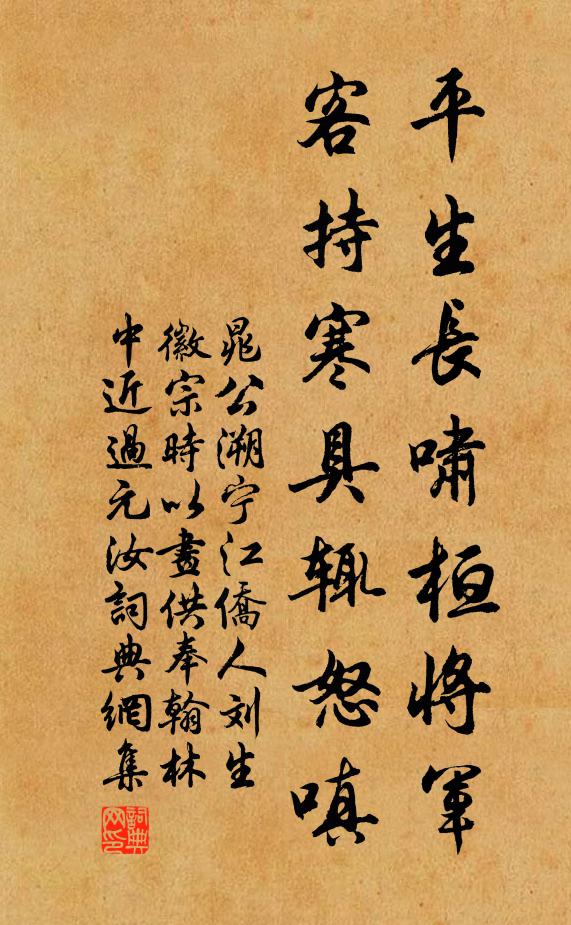 平生長嘯桓將軍
客持寒具輒怒嗔
晁公溯宁江僑人刘生
徽宗時以畫供奉翰林
中近過元汝詞典網集
詞典网印